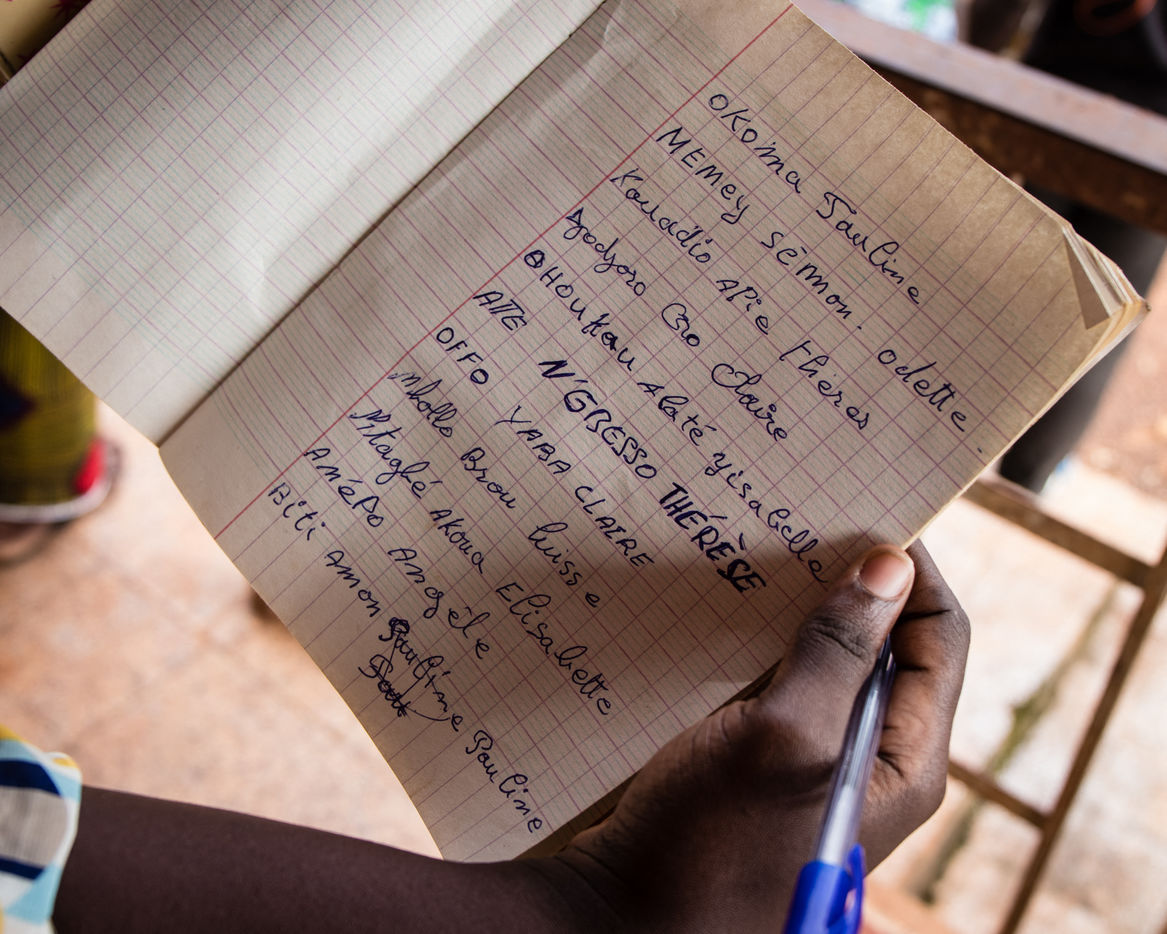 OKOMA Pauline
MEMEY SÉMON. Odette
Kouadio Apie thérès
Djodjoro Bro Claire
AHOUKau Alaté yisabelle
ATTE N'GBESSO THÉRÈSE
OFFO YABA CLAIRE
Brou luisse
Akoua Elisabette
Anépo Angèle
Biti Amon Pauline Pauline